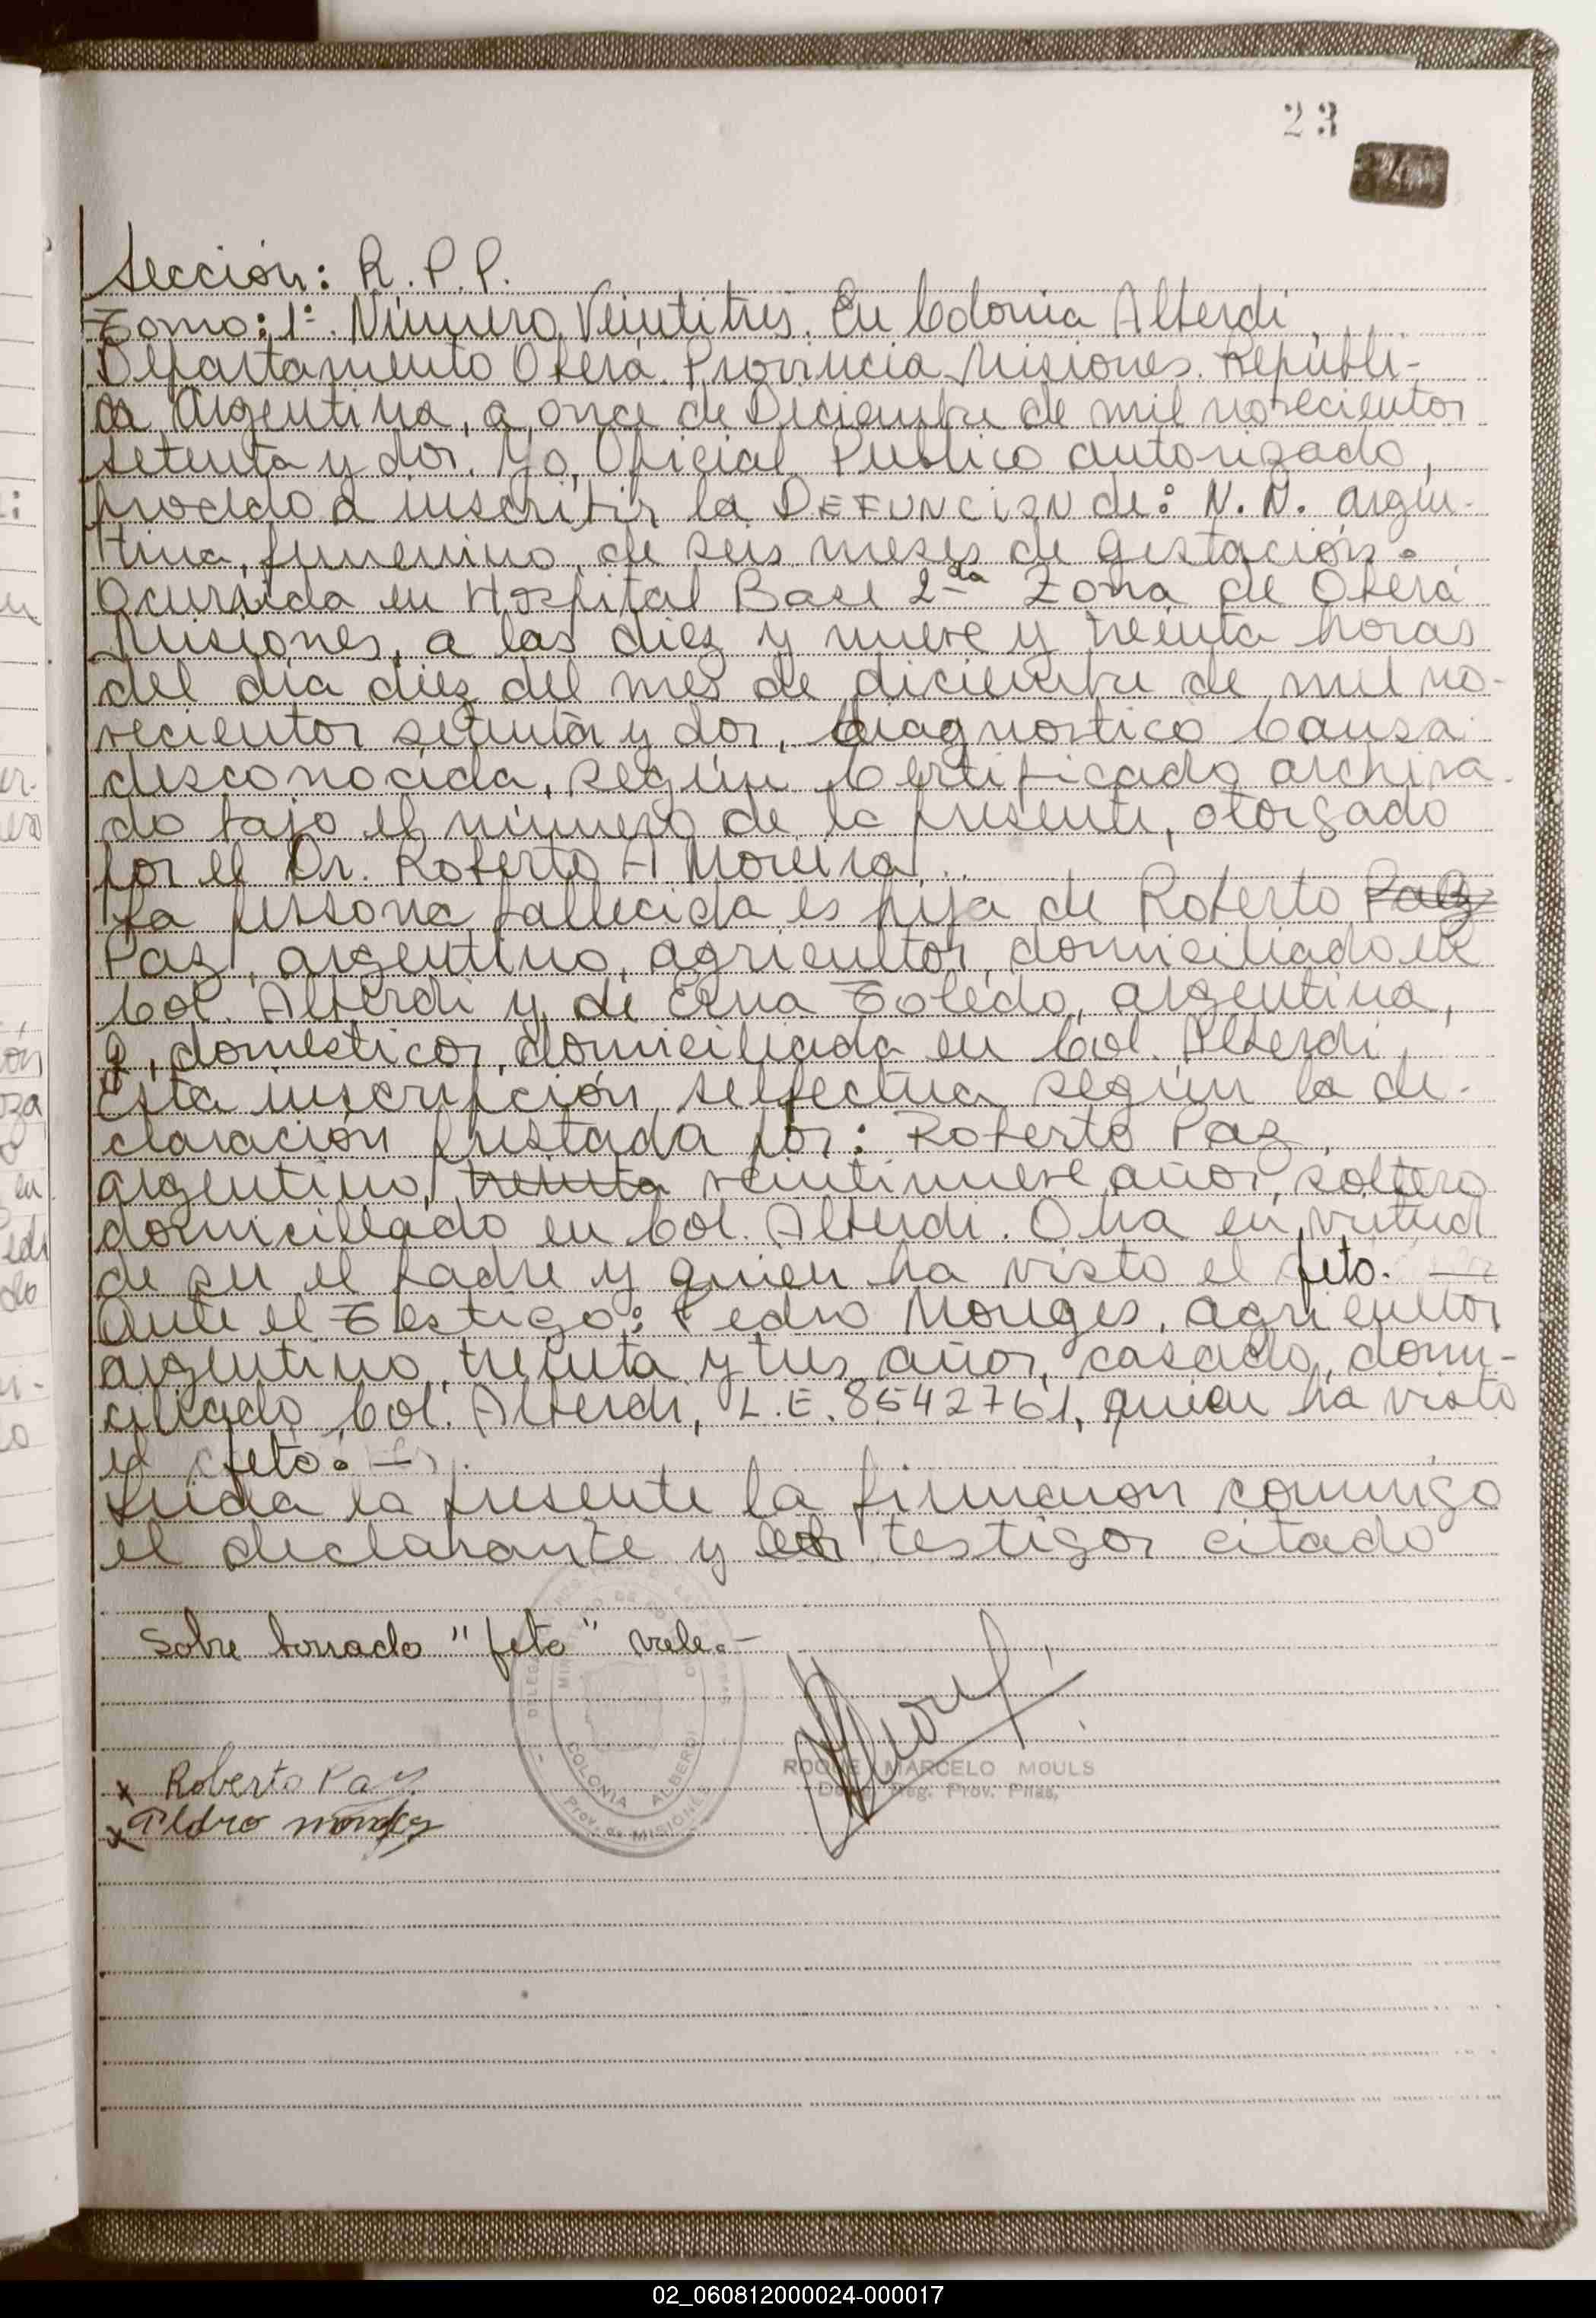 23
Sección: R.P.P.
Tomo: 1º. Número Veintitres. En Colonia Alberdi,
Departamento Oberá. Provincia Misiones. Repúbli-
ca Argentina, a once de Diciembre de mil novecientos
setenta y dos. Yo, Oficial Público autorizado,
procedo a inscribir la DEFUNCION de: N.N. argen-
tina, femenino, de seis meses de gestación.
Ocurrida en Hospital Base 2da Zona de Oberá
Misiones, a las diez y nueve y treinta horas
del día diez del mes de diciembre de mil no-
vecientos setenta y dos, diagnostico Causa
desconocida, según Certificado archiva-
do bajo el número de la presente, otorgado
por el Dr. Roberto A Moreira.
La persona fallecida es hija de Roberto Paz
Paz, argentino, agricultor, domiciliado en
Col. Alberdi y de Erna Toledo, argentina,
q. domesticos, domiciliada en Col. Alberdi,
Esta inscripción, se efectua según la de-
claración prestada por: Roberto Paz,
argentino, treinta veintinueve años, soltero
domicillado en Col. Alberdi. Obra en virtud
de ser el padre y quien ha visto el feto.
Ante el Testigo: Pedro Monges, agricultor
argentino, treinta y tres años, casado, domi-
ciliado Col. Alberdi, L.E. 8542761, quien ha visto
el feto.
Leida la presente la firmaron conmigo
el declarante y los testigos citado
Sobre borrado "feto" vale.-
COLONIA ALBERDI
Prov. de MISIONES
x Roberto Paz
ROQUE MARCELO MOULS
Reg. Prov. Pnas,
x Pedro monges
02_060812000024-000017